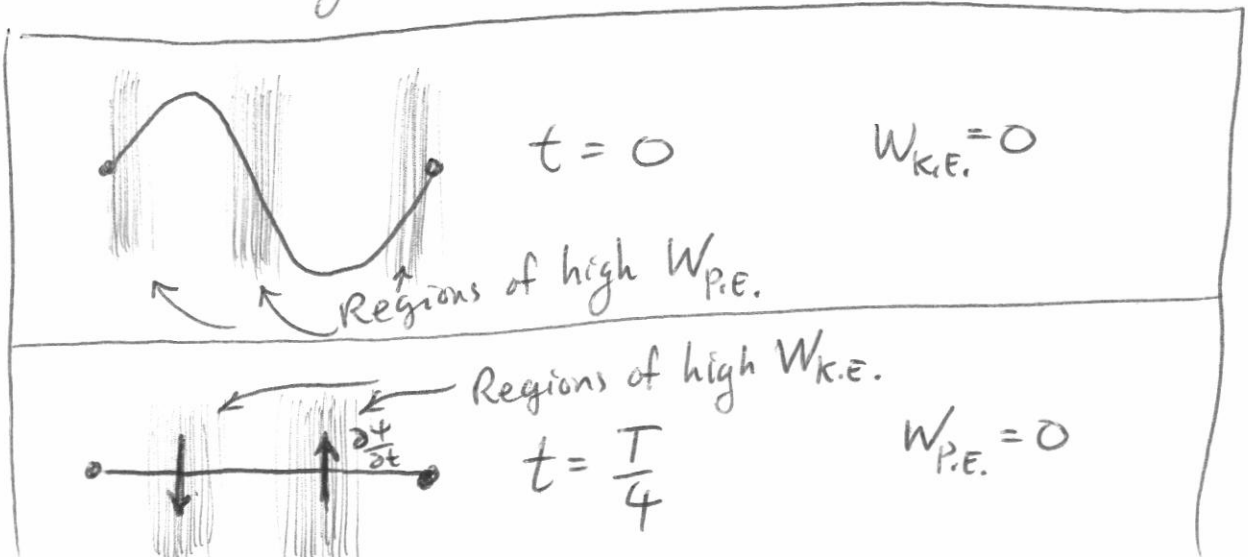 t = 0
W_{K.E.} = 0
Regions of high W_{P.E.}
Regions of high W_{K.E.}
∂Ψ/∂t
t = T/4
W_{P.E.} = 0